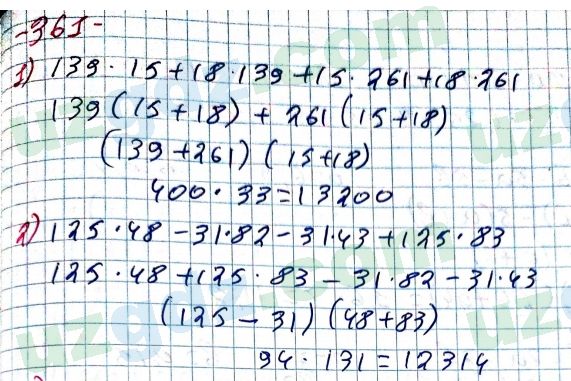 -361-
1) 139 · 15 + 18 · 139 + 15 · 261 + 18 · 261
139 (15 + 18) + 261 (15 + 18)
(139 + 261) (15 + 18)
400 · 33 = 13200
2) 125 · 48 - 31 · 82 - 31 · 43 + 125 · 83
125 · 48 + 125 · 83 - 31 · 82 - 31 · 43
(125 - 31) (48 + 83)
94 · 131 = 12314